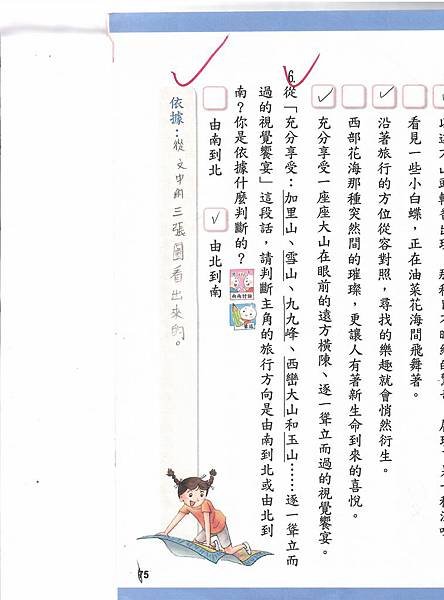 看見一些小白蝶，正在油菜花海間飛舞著。
✓
沿著旅行的方位從容對照，尋找的樂趣就會悄然衍生。
西部花海那種突然間的璀璨，更讓人有著新生命到來的喜悅。
✓
充分享受一座座大山在眼前的遠方橫陳、逐一聳立而過的視覺饗宴。
6.從「充分享受：加里山、雪山、九九峰、西巒大山和玉山……逐一聳立而
過的視覺饗宴」這段話，請判斷主角的旅行方向是由南到北或由北到
南？你是依據什麼判斷的？
由南到北
✓
由北到南
依據：從文中附三張圖看出來的。
75